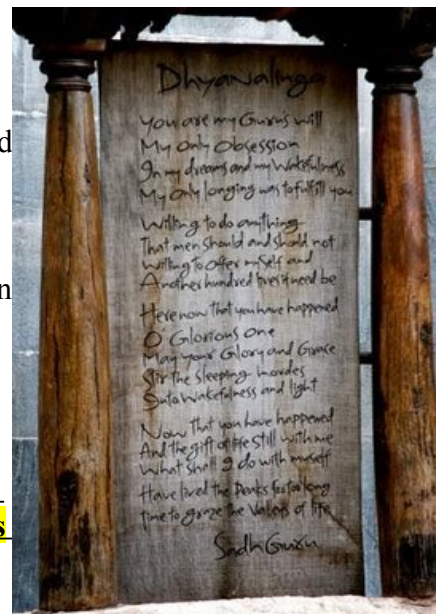 d
n
s
Dhyanalinga
You are my Guru's will
My Only Obsession
In my dreams and my Wakefulness
My Only longing was to fulfill you
Willing to do anything
That men Should and Should not
Willing to Offer myself and
Another hundred lives if need be
Here now that you have happened
O' Glorious One
May your Glory and Grace
Stir the Sleeping mordes
Into Wakefulness and light
Now that you have happened
And the gift of life Still with me
What shall I do with myself
Have lived the Peaks for too long
Time to graze the Valleys of life
SadhGuru